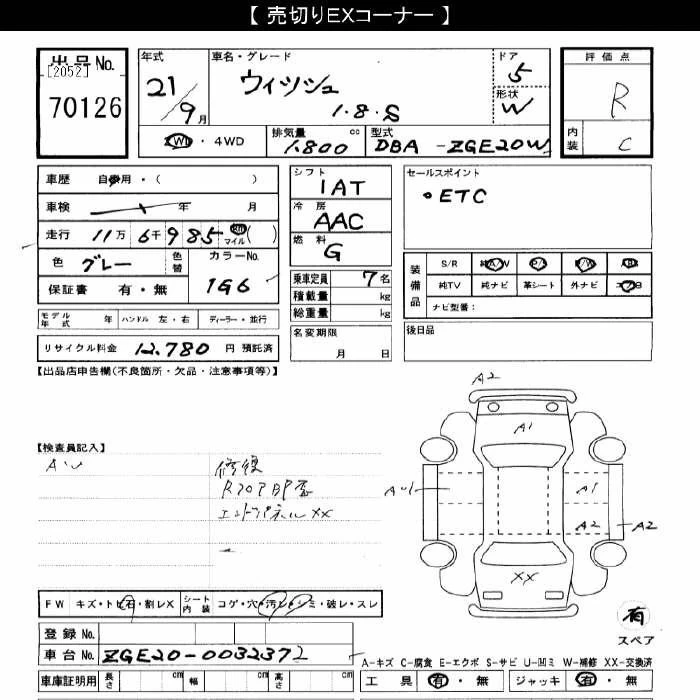 【 売切りEXコーナー 】
出品No.
[2052]
70126
年式
21/9月
車名・グレード
ウィッシュ
1.8.S
ドア
5
形状
W
評価点
R
内装
C
2WD・4WD
排気量 cc
1.800
型式
DBA -ZGE20W
車歴 自家用・( )
車検 年 月
走行 11万 6千985 km マイル( )
色 グレー 色替 カラーNo. 1G6
保証書 有・無
シフト
1AT
冷房
AAC
燃料
G
セールスポイント
・ETC
乗車定員 7名
積載量 kg
総重量 kg
装備品
S/R 純A/W P/S P/W ABS
純TV 純ナビ 革シート 外ナビ エアB
ナビ型番:
モデル年式 年 ハンドル 左・右 ディーラー・並行
名変期限
月 日
後日品
リサイクル料金 12.780 円 預託済
【出品店申告欄(不良箇所・欠品・注意事項等)】
A2
A1
【検査員記入】
AU
修復
RフロアBP歪
エンドパネルXX
AU1
A1
A2
A2
XX
FW キズ・トビ石・割レX シート内装 コゲ・穴・汚レ・シミ・破レ・スレ
有
スペア
登録No.
車台No. ZGE20-0032372
A-キズ C-腐食 E-エクボ S-サビ U-凹ミ W-補修 XX-交換済
車庫証明用 長さ cm 幅 cm 高さ cm
工具 有・無 ジャッキ 有・無